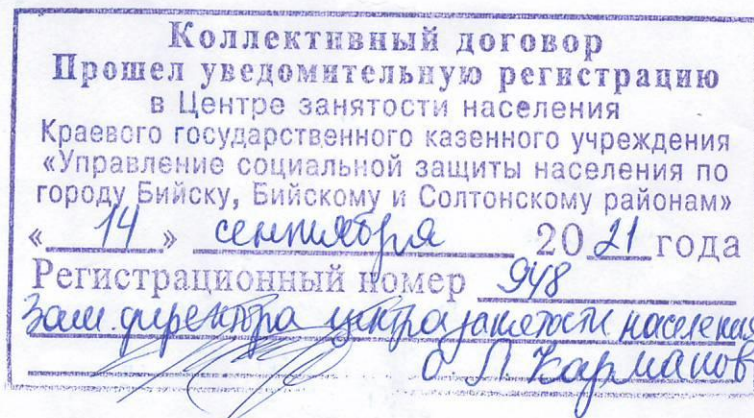 Коллективный договор
Прошел уведомительную регистрацию
в Центре занятости населения
Краевого государственного казенного учреждения
«Управление социальной защиты населения по
городу Бийску, Бийскому и Солтонскому районам»
« 14 » сентября 20 21 года
Регистрационный номер 948
Зам. директора центра занятости населения
О. Л. Карманов